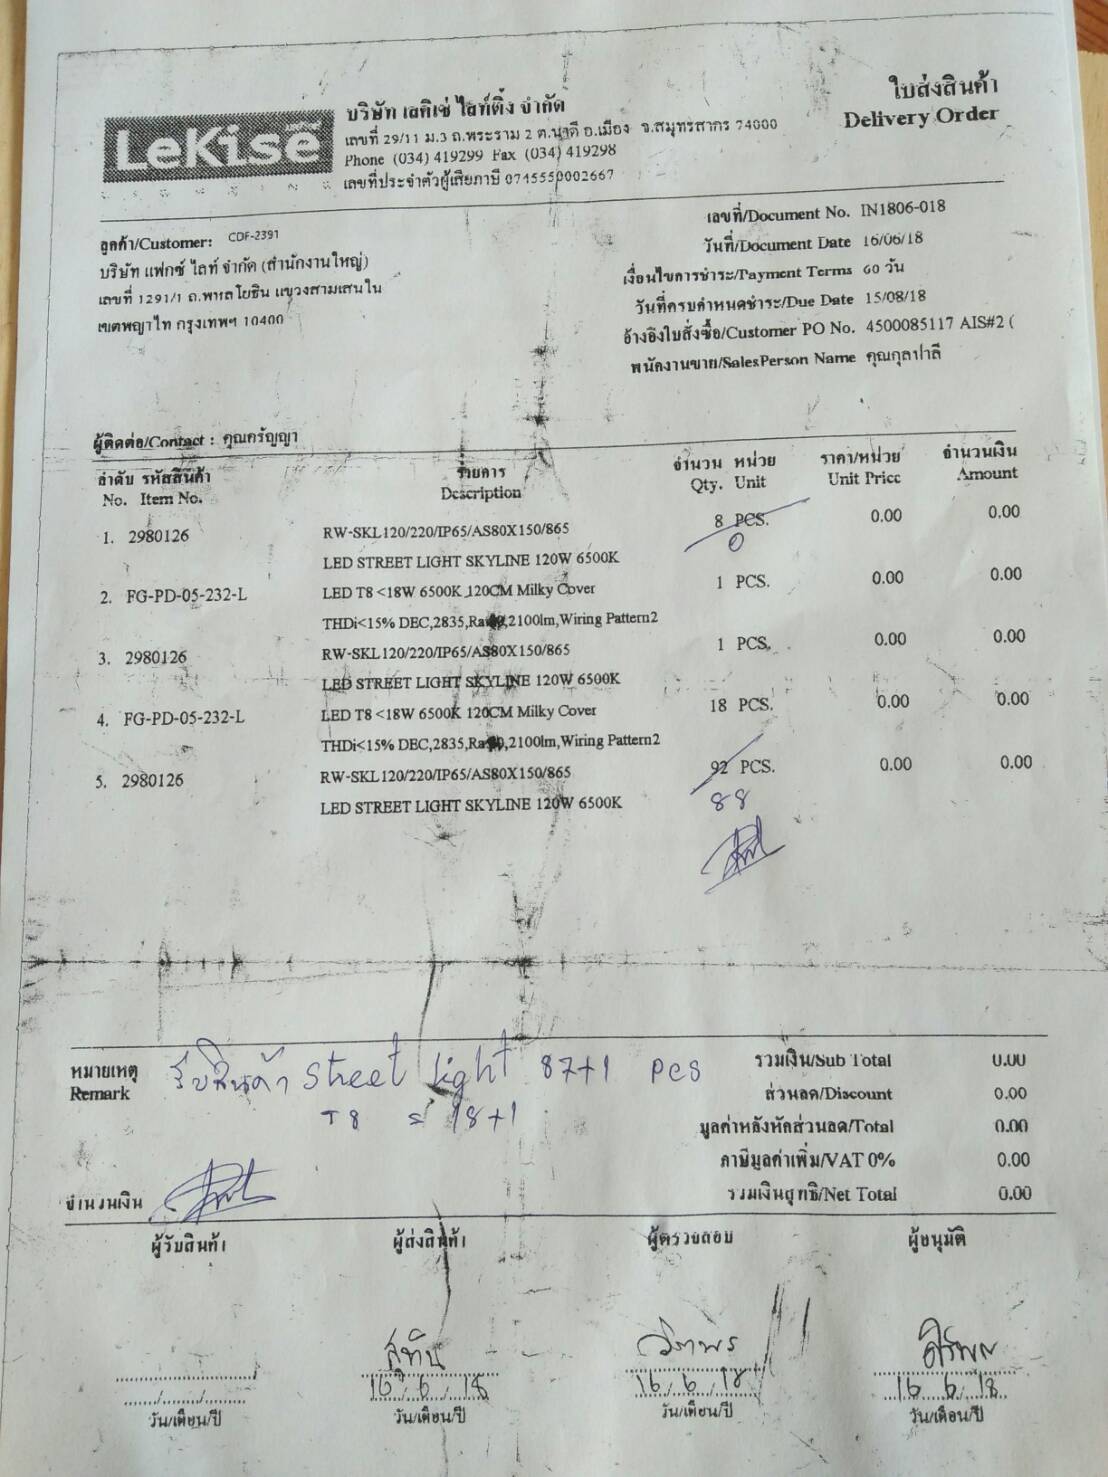 LeKise
บริษัท เลคิเซ่ ไลท์ติ้ง จำกัด
เลขที่ 29/11 ม.3 ถ.พระราม 2 ต.นาดี อ.เมือง จ.สมุทรสาคร 74000
Phone (034) 419299 Fax (034) 419298
เลขที่ประจำตัวผู้เสียภาษี 0745550002667
ใบส่งสินค้า
Delivery Order
ลูกค้า/Customer: CDF-2391
บริษัท แฟกซ์ ไลท์ จำกัด (สำนักงานใหญ่)
เลขที่ 1291/1 ถ.พหลโยธิน แขวงสามเสนใน
เขตพญาไท กรุงเทพฯ 10400
เลขที่/Document No. IN1806-018
วันที่/Document Date 16/06/18
เงื่อนไขการชำระ/Payment Terms 60 วัน
วันที่ครบกำหนดชำระ/Due Date 15/08/18
อ้างอิงใบสั่งซื้อ/Customer PO No. 4500085117 AIS#2 (
พนักงานขาย/SalesPerson Name คุณกุลปาลี
ผู้ติดต่อ/Contact : คุณครัญญา
ลำดับ รหัสสินค้า รายการ จำนวน หน่วย ราคา/หน่วย จำนวนเงิน
No. Item No. Description Qty. Unit Unit Price Amount
1. 2980126 RW-SKL120/220/IP65/AS80X150/865 8 PCS. 0.00 0.00
0
LED STREET LIGHT SKYLINE 120W 6500K
2. FG-PD-05-232-L LED T8 <18W 6500K 120CM Milky Cover 1 PCS. 0.00 0.00
THDi<15% DEC,2835,2100lm,Wiring Pattern2
3. 2980126 RW-SKL120/220/IP65/AS80X150/865 1 PCS. 0.00 0.00
LED STREET LIGHT SKYLINE 120W 6500K
4. FG-PD-05-232-L LED T8 <18W 6500K 120CM Milky Cover 18 PCS. 0.00 0.00
THDi<15% DEC,2835,2100lm,Wiring Pattern2
5. 2980126 RW-SKL120/220/IP65/AS80X150/865 92 PCS. 0.00 0.00
LED STREET LIGHT SKYLINE 120W 6500K
88
หมายเหตุ รับสินค้า street light 87+1 pcs
Remark
T8 = 18+1
รวมเงิน/Sub Total 0.00
ส่วนลด/Discount 0.00
มูลค่าหลังหักส่วนลด/Total 0.00
ภาษีมูลค่าเพิ่ม/VAT 0% 0.00
รวมเงินสุทธิ/Net Total 0.00
จำนวนเงิน
ผู้รับสินค้า ผู้ส่งสินค้า ผู้ตรวจสอบ ผู้อนุมัติ
สุทิน
16/6/18 16/6/18 16/6/18
วัน/เดือน/ปี วัน/เดือน/ปี วัน/เดือน/ปี วัน/เดือน/ปี